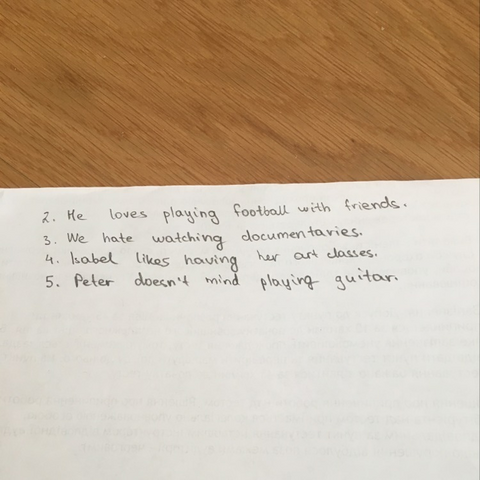 2. He loves playing football with friends.
3. We hate watching documentaries.
4. Isabel likes having her art classes.
5. Peter doesn't mind playing guitar.